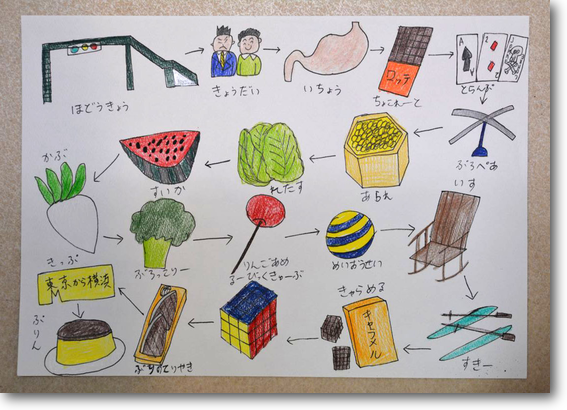 ほどうきょう
きょうだい
いちょう
ロッテ
ちょこれーと
A
とらんぷ
かぶ
すいか
れたす
いす
ぶろっこりー
りんごあめ
めいおうせい
きっぷ
東京から横浜
ぷりん
るーびっくきゅーぶ
きゃらめる
キャラメル
すきー